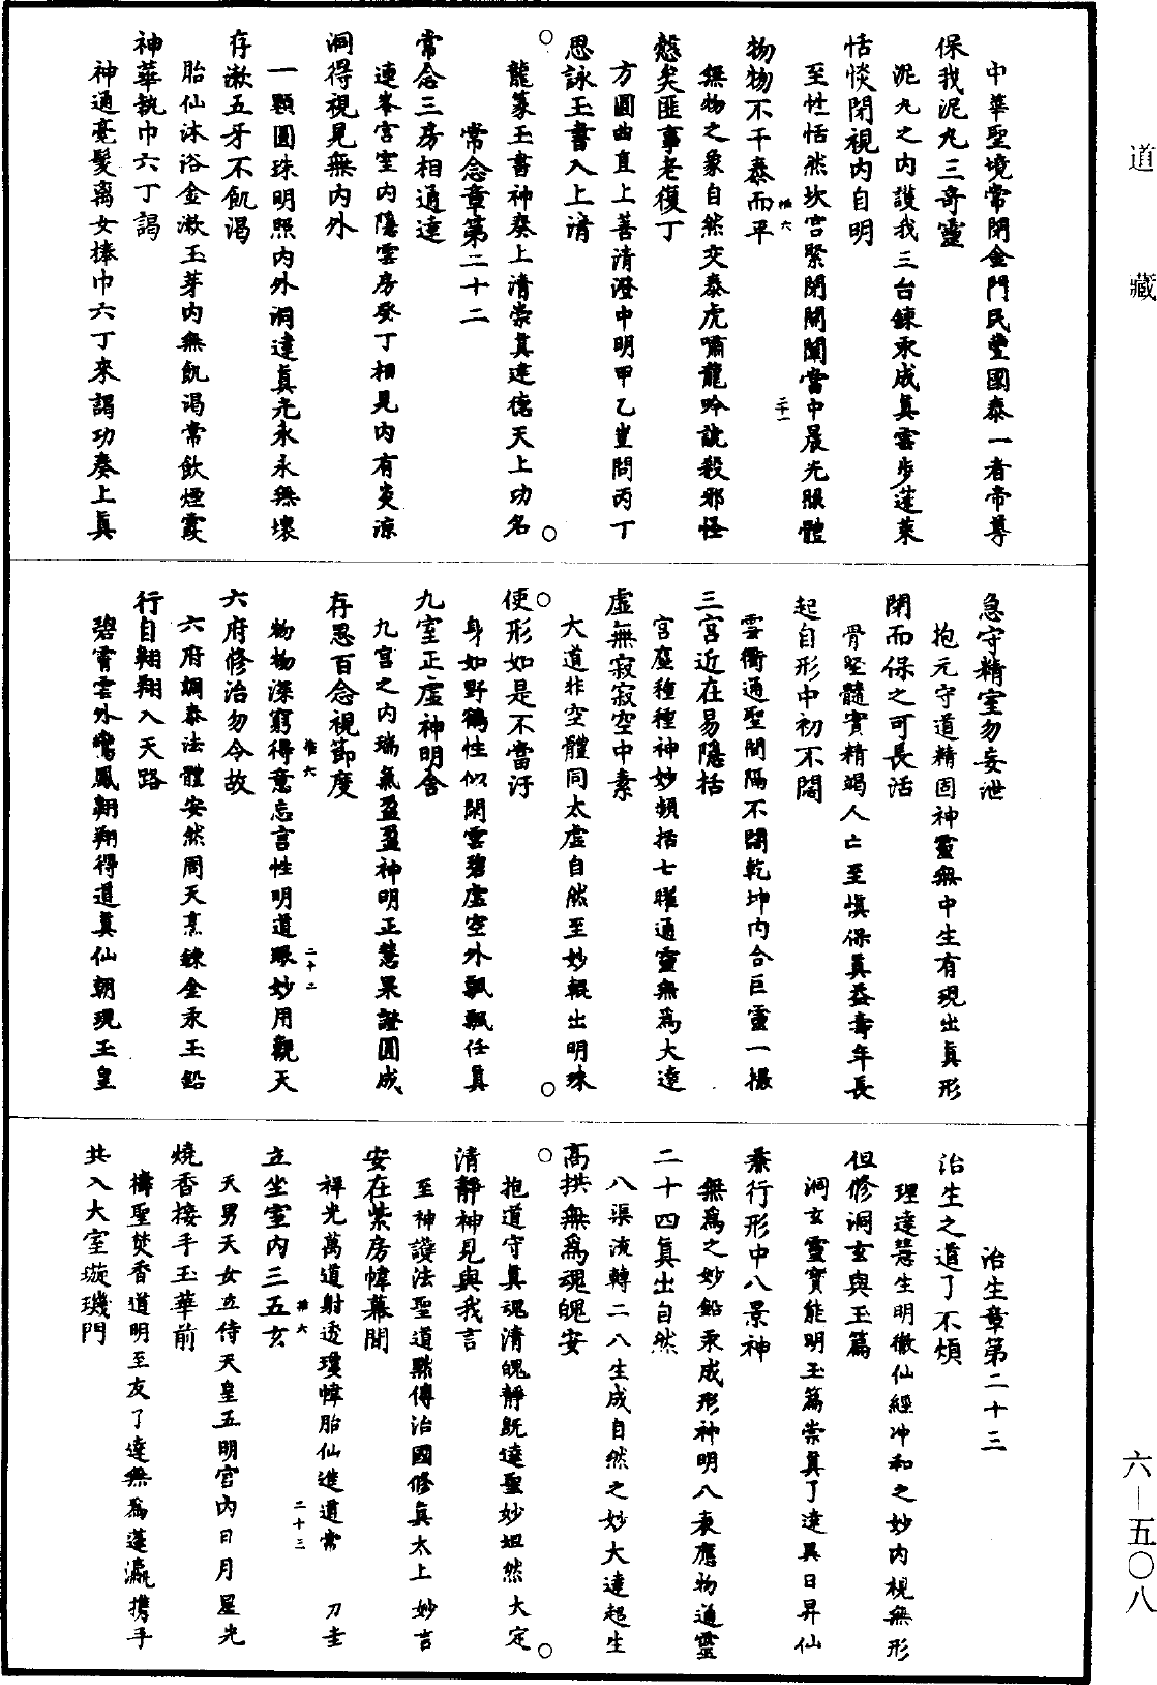 道藏
六—五〇八
中華聖境常閉金門民豐國泰一者帝尊
保我泥丸三奇靈
泥丸之內護我三台鍊汞成真雲步蓬萊
恬惔閉視內自明
至性恬然坎宮緊閉關闌當中晨光眼體
物物不干泰而平
惟六
二十一
無物之象自然交泰虎嘯龍吟誅殺邪怪
慤矣匪事老復丁
方圓曲直上善清澄中明甲乙豈問丙丁
思詠玉書入上清
龍篆玉書神奏上清崇真達德天上功名
常念章第二十二
常念三房相通達
連峯宮室內隱雲房癸丁相見內有炎涼
洞得視見無內外
一顆圓珠明照內外洞達真元永永無壞
存漱五牙不飢渴
胎仙沐浴金漱玉芽內無飢渴常飲煙霞
神華執巾六丁謁
神通毫髮离女捧巾六丁來謁功奏上真
急守精室勿妄泄
抱元守道精固神靈無中生有現出真形
閉而保之可長活
骨堅髓實精竭人亡至慎保真益壽年長
起自形中初不闊
雲衢通聖間隔不闊乾坤內合巨靈一撮
三宮近在易隱括
宮座種種神妙頻括七曜通靈無為大達
虛無寂寂空中素
大道非空體同太虛自然至妙輥出明珠
使形如是不當汙
身如野鶴性似閑雲碧虛空外飄飄任真
九室正虛神明舍
九宮之內瑞氣盈盈神明正慧果證圓成
存思百念視節度
惟六
二十二
物物深窮得意忘言性明道眼妙用觀天
六府修治勿令故
六府調泰法體安然周天烹鍊金汞玉鉛
行自翱翔入天路
碧霄雲外鸞鳳翱翔得道真仙朝現玉皇
治生章第二十三
治生之道了不煩
理達慧生明徹仙經冲和之妙內視無形
但修洞玄與玉篇
洞玄靈寶能明玉篇崇真了達異日昇仙
兼行形中八景神
無為之妙鉛汞成形神明八表應物通靈
二十四真出自然
八渠流轉二八生成自然之妙大達超生
高拱無為魂魄安
抱道守真魂清魄靜既達聖妙坦然大定
清靜神見與我言
至神護法聖道點傳治國修真太上妙言
安在紫房幃幕間
祥光萬道射透瓊幃胎仙進道常 刀圭
立坐室內三五玄
惟六
二十三
天男天女立侍天皇五明宮內日月星光
燒香接手玉華前
禱聖焚香道明至友了達無為蓬瀛携手
共入大室璇璣門